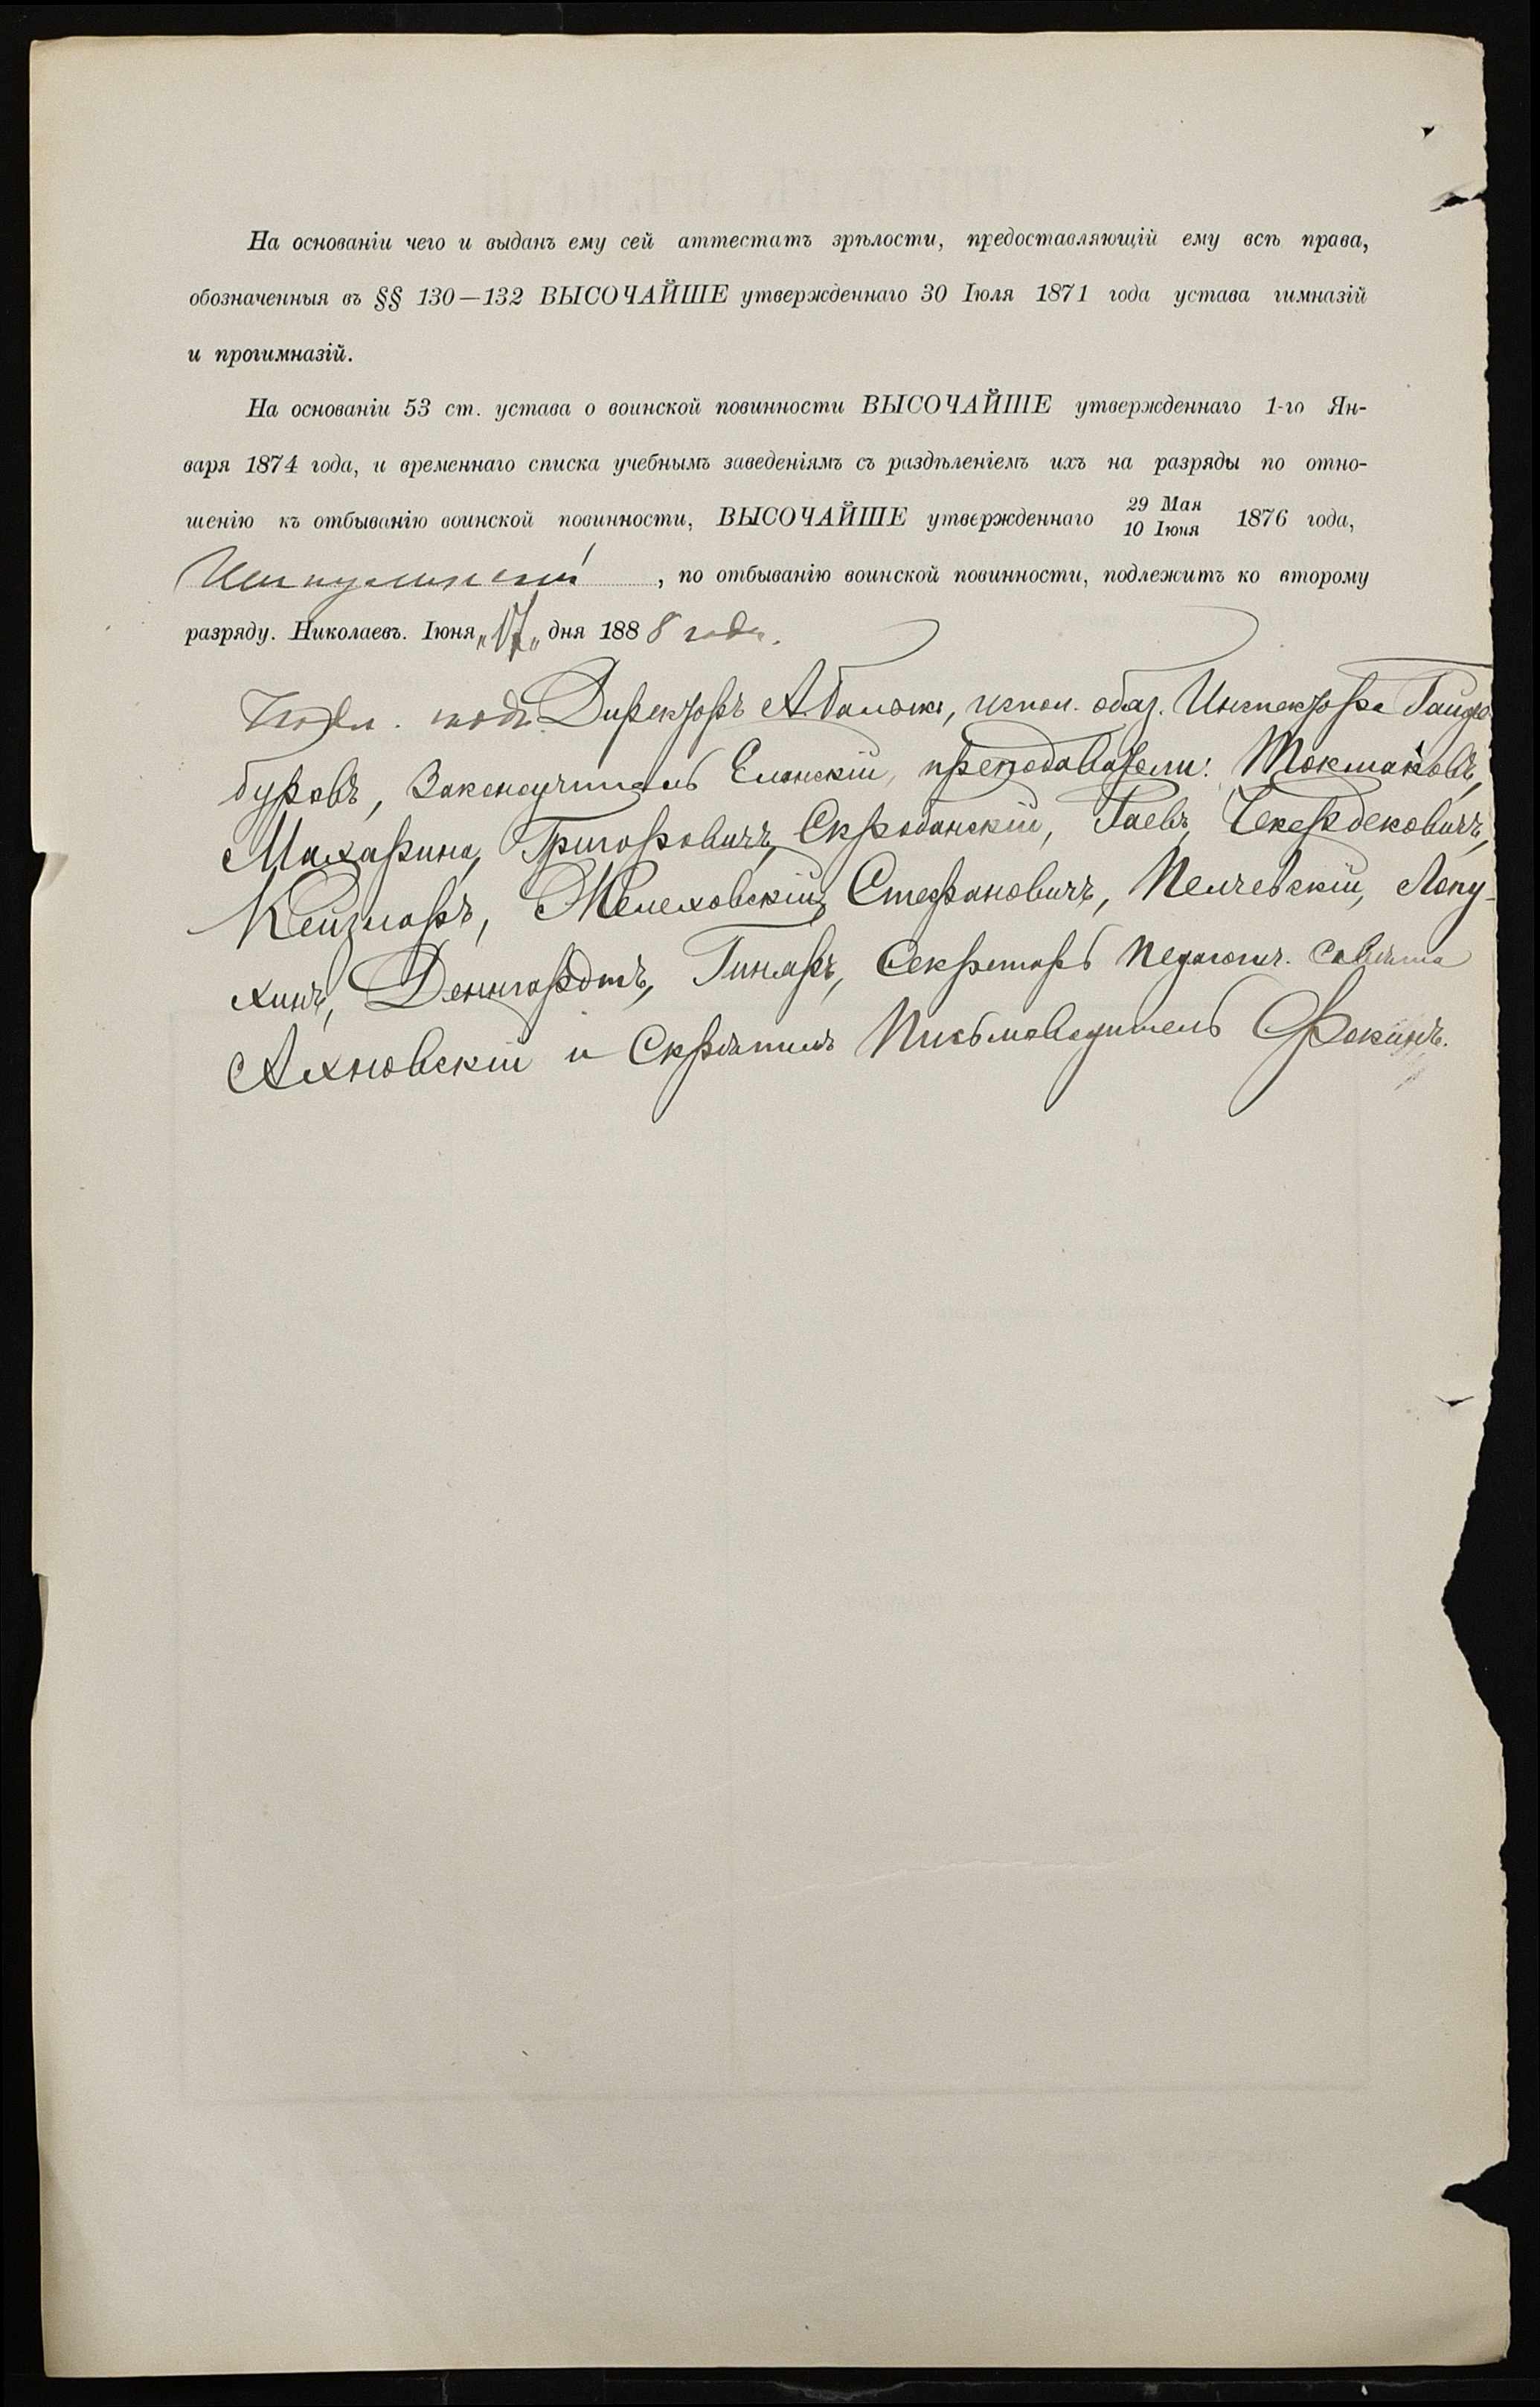 На основаніи чего и выданъ ему сей аттестатъ зрѣлости, предоставляющій ему всѣ права,
обозначенныя въ §§ 130—132 ВЫСОЧАЙШЕ утвержденнаго 30 Іюля 1871 года устава гимназій
и прогимназій.
На основаніи 53 ст. устава о воинской повинности ВЫСОЧАЙШЕ утвержденнаго 1-го Ян-
варя 1874 года, и временнаго списка учебнымъ заведеніямъ съ раздѣленіемъ ихъ на разряды по отно-
шенію къ отбыванію воинской повинности, ВЫСОЧАЙШЕ утвержденнаго 29 Мая 10 Іюня 1876 года,
, по отбыванію воинской повинности, подлежитъ ко второму
разряду. Николаевъ. Іюня „17„ дня 1888 года.
Подл. подп. Директоръ А. испол. обяз. Инспектора Гайда-
буровъ, Законоучитель Еланскій, преподаватели: Токмаковъ,
Махарина, Григоровичъ, Скробанскій, Раевъ, Чекердековичъ,
Кейзмаръ, Мелеховскій, Стефановичъ, Пелчевскій, Лопу-
хинъ, Деннгардтъ, Гинларъ, Секретарь Педагогич. Совѣта
Ахновскій и Скрѣпилъ Письмоводитель Фокинъ.